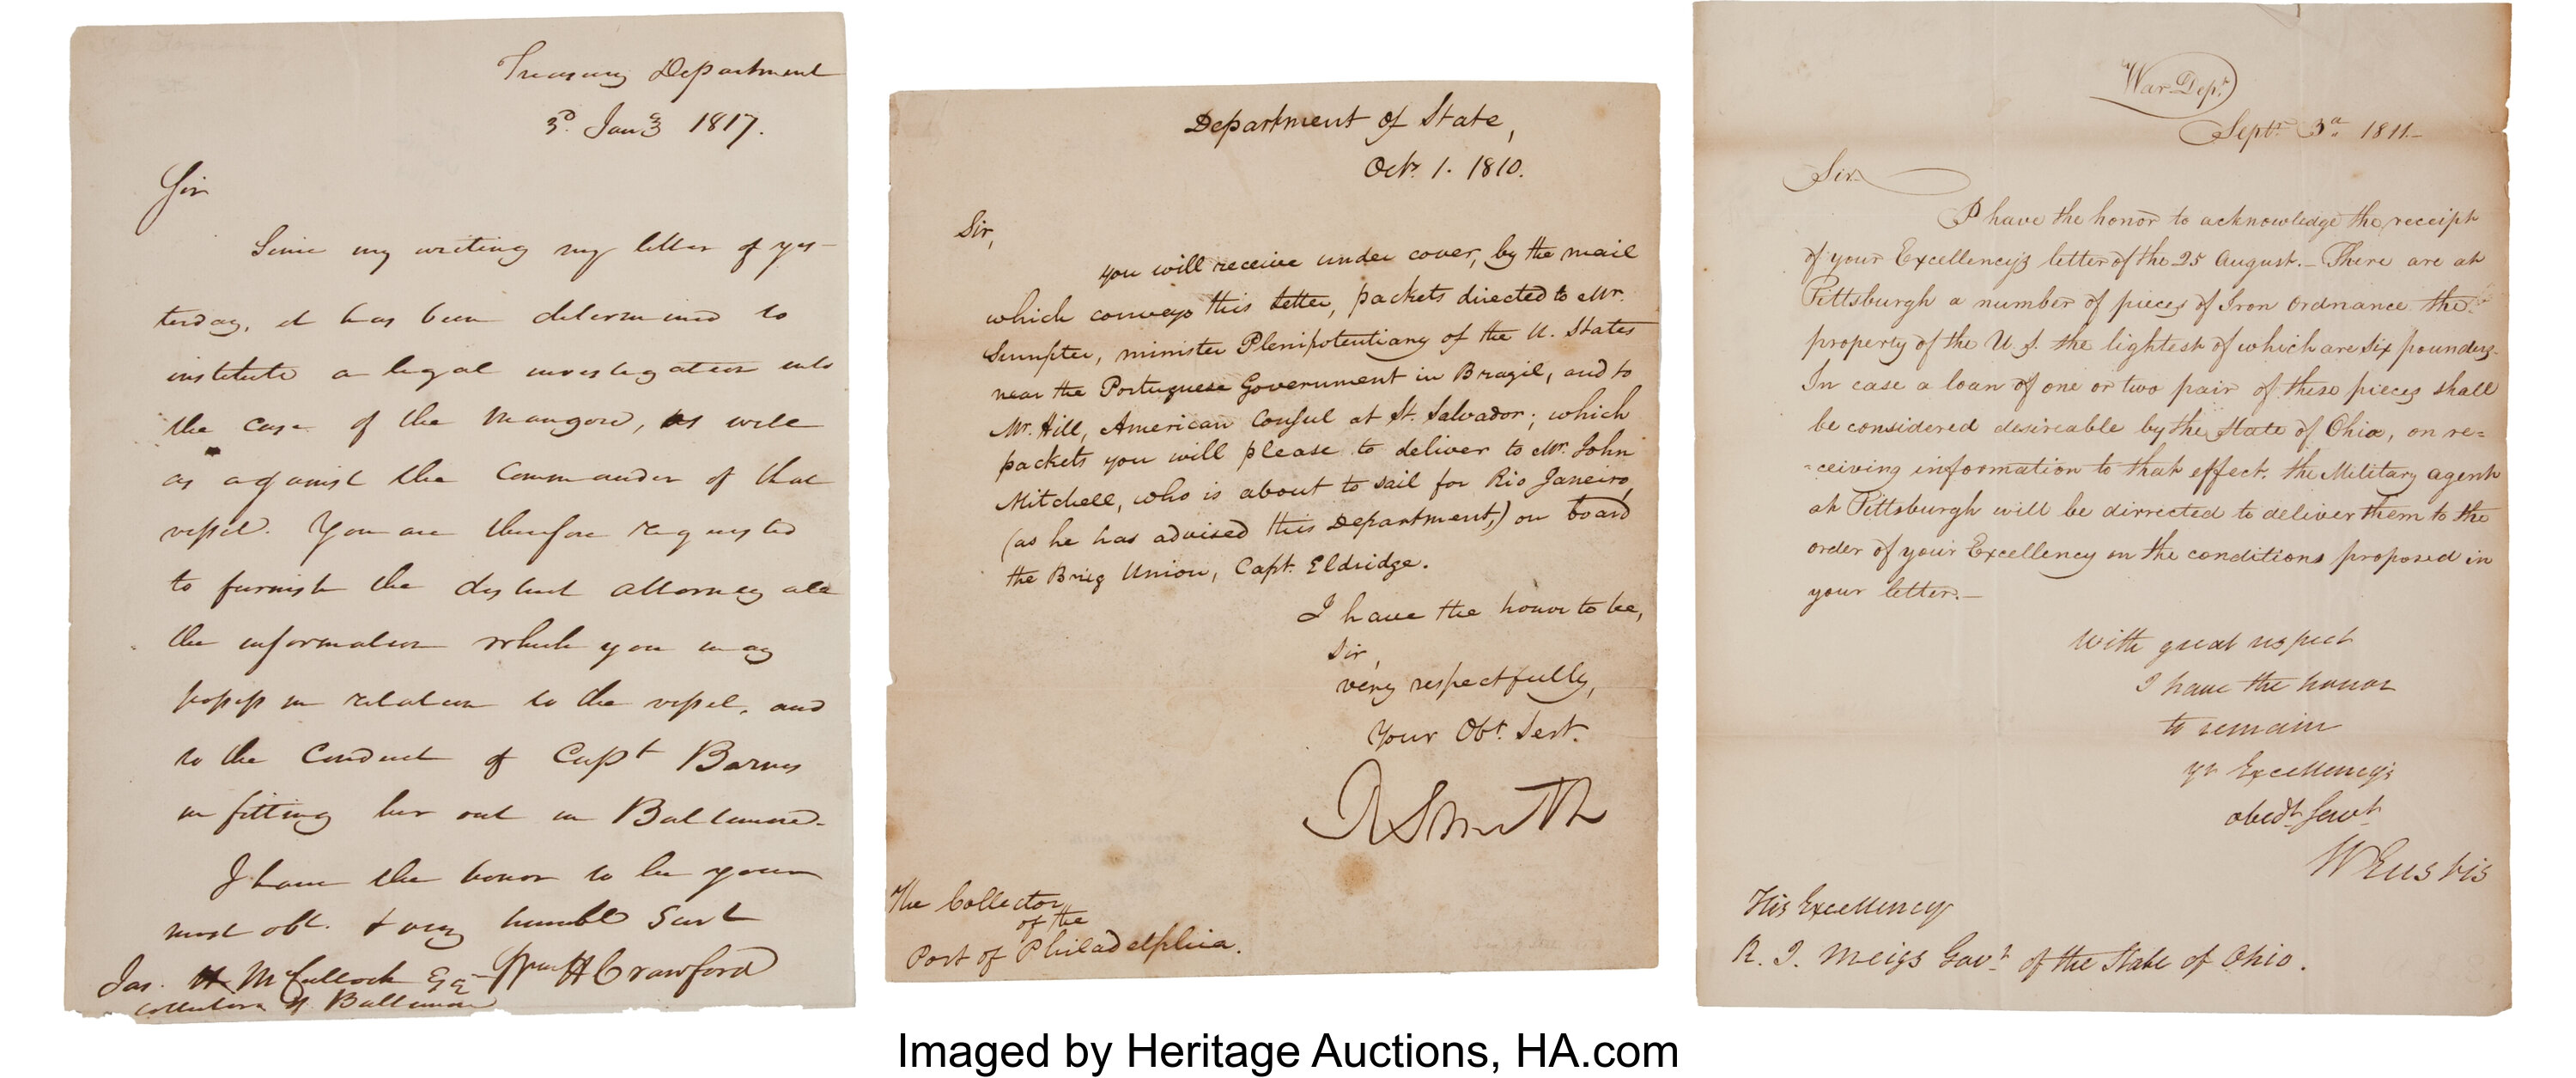 Treasury Department
3d. Jany 1817.
Sir
Since my writing my letter of yes-
terday, it has been determined to
institute a legal investigation into
the case of the Mangore, as well
as against the Commander of that
vessel. You are therefore requested
to furnish the district attorney all
the information which you may
possess in relation to the vessel, and
to the Conduct of Capt Barnes
in fitting her out in Baltimore.
I have the honor to be your
most obt. & very humble Sevt
Wm H Crawford
Jas. H McCullock Esq
collector of Baltimore
Department of State,
Octr. 1. 1810.
Sir,
you will receive under cover, by the mail
which conveys this letter, packets directed to Mr.
Sumpter, minister Plenipotentiary of the U. States
near the Portuguese Government in Brazil, and to
Mr. Hill, American Consul at St. Salvador; which
packets you will please to deliver to Mr. John
Mitchell, who is about to sail for Rio Janeiro,
(as he has advised this Department,) on board
the Brig Union, Capt. Eldridge.
I have the honor to be,
Sir,
very respectfully,
Your Obt. Sert.
R Smith
The Collector
of the
Port of Philadelphia.
War Dept.
Septr. 3d. 1811.
Sir
I have the honor to acknowledge the receipt
of your Excellency's letter of the 25 August.- There are at
Pittsburgh a number of pieces of Iron Ordnance the
property of the U S. the lightest of which are six pounders.
In case a loan of one or two pair of these pieces shall
be considered desireable by the State of Ohio, on re=
=ceiving information to that effect. the Military agent
at Pittsburgh will be dirrected to deliver them to the
order of your Excellency on the conditions proposed in
your letter.-
With great respect
I have the honor
to remain
yr Excellency's
obedt. Servt
W Eustis
His Excellency
R. J. Meigs Govr. of the State of Ohio.
Imaged by Heritage Auctions, HA.com